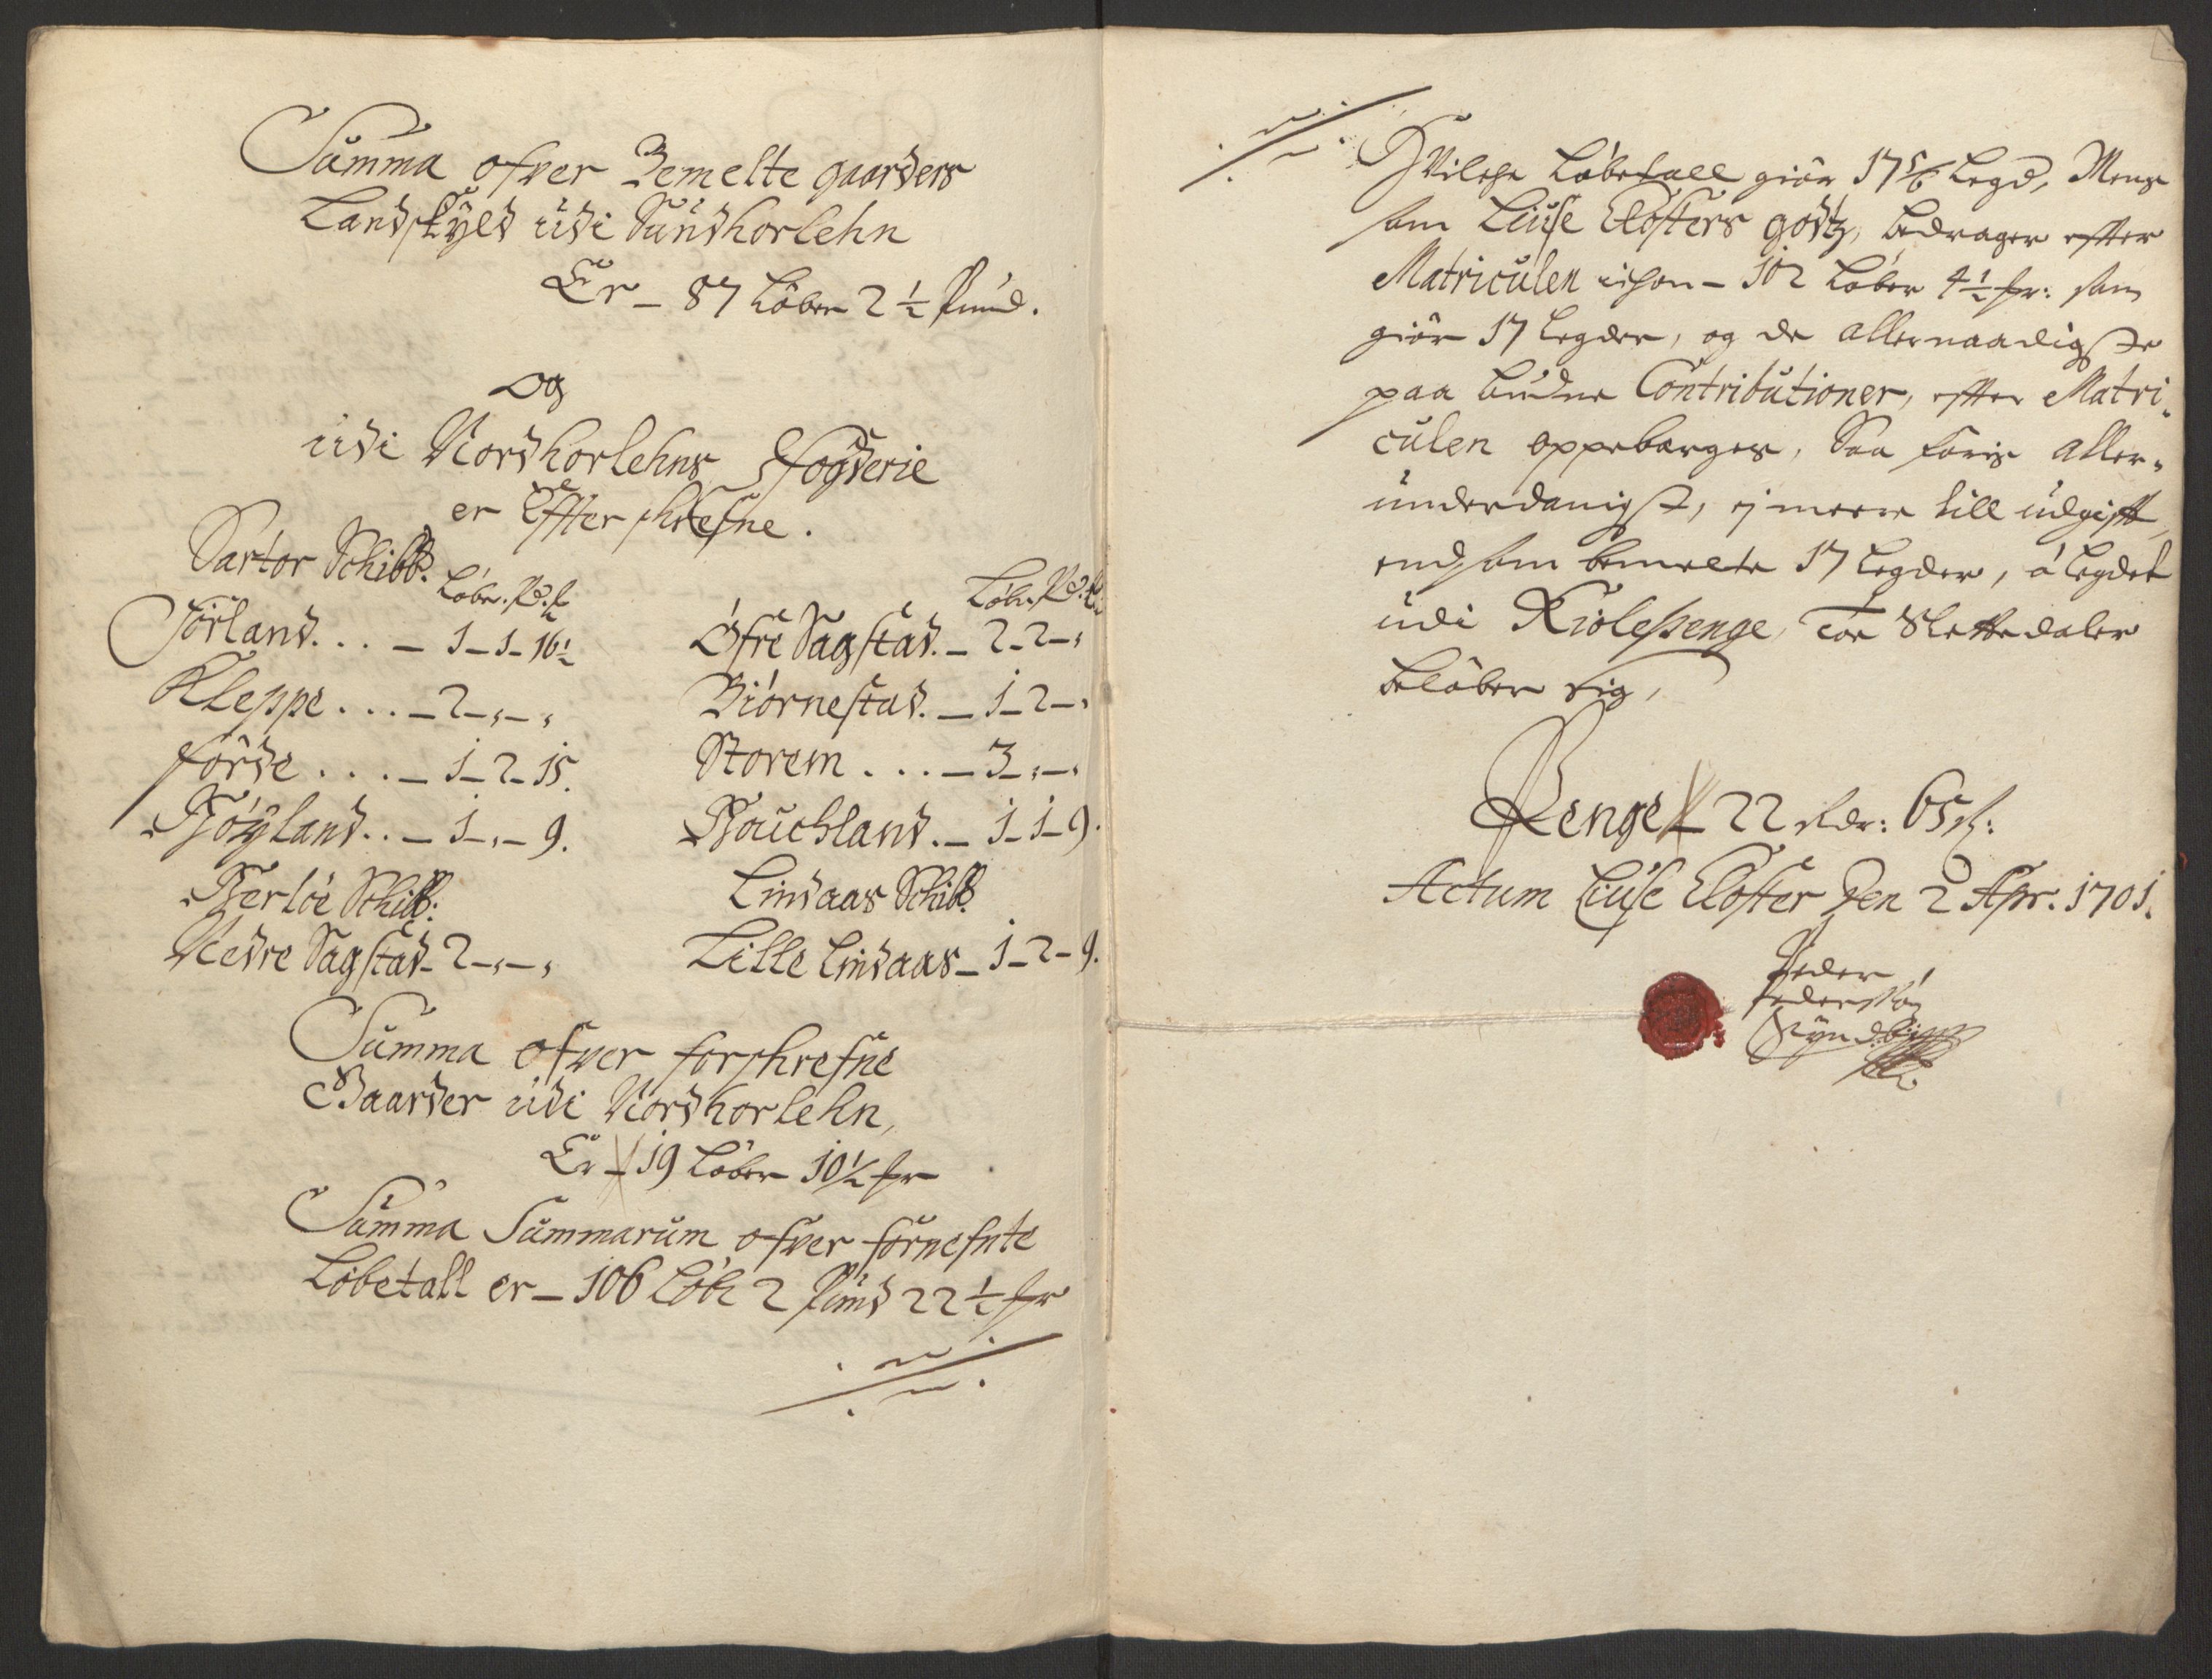 Summa ofver Bemelte gaarders
Landskyld udi Sundhorlehn
Er – 87 Løber 2 1/2 Pund.
Og
udi Nordhorlehns Fogderie
er Effterskrefne.
Sartor Schibb.
Løbe. Pd. f
Torland. . . – 1 – 1 – 16 1/2
Kleppe . . . – 2 – „ – „
förde . . . – 1 – 2 – 15.
Høyland . . – 1 – „ – 9.
Herlöe Schibb:
Nedre Sagstad – 2 – „ – „
Løbe. Pd.
Öfre Sagstad. – 2 – 2 – „
Biörnestad. – 1 – 2 – „
Storem . . . – 3 – „ – „
Houchland. – 1 – 1 – 9.
Lindaas Schibb.
Lille Lindaas – 1 – 2 – 9.
Summa ofver forskrefne
Gaarder udi Nordhorlehn,
Er – 19 Løber 10 1/2 fr
Summa Summarum ofver fornefnte
Löbetall er – 106 Løb: 2 Pund 22 1/2 fr
Hvilche Løbetall giör 17 5/6 Legd, Mens
som Liuse Closters godtz, bedrager efter
Matriculen – 102 Løber 4 1/2 fr: som
giör 17 Legder, og de allernaadigste
paa budne Contributioner, efter Matri„
culen oppebærges, Saa föris aller„
underdanigst, ej meere till udgift
end som bemelte 17 Legder, á Legdet
udi Kiolepenge, Toe Slettedaler
beløber sig,
Penge – 22 Rdr: 65 s:
Actum Liuse Closter Den 2 Apr. 1701.
Peder
Pedersen